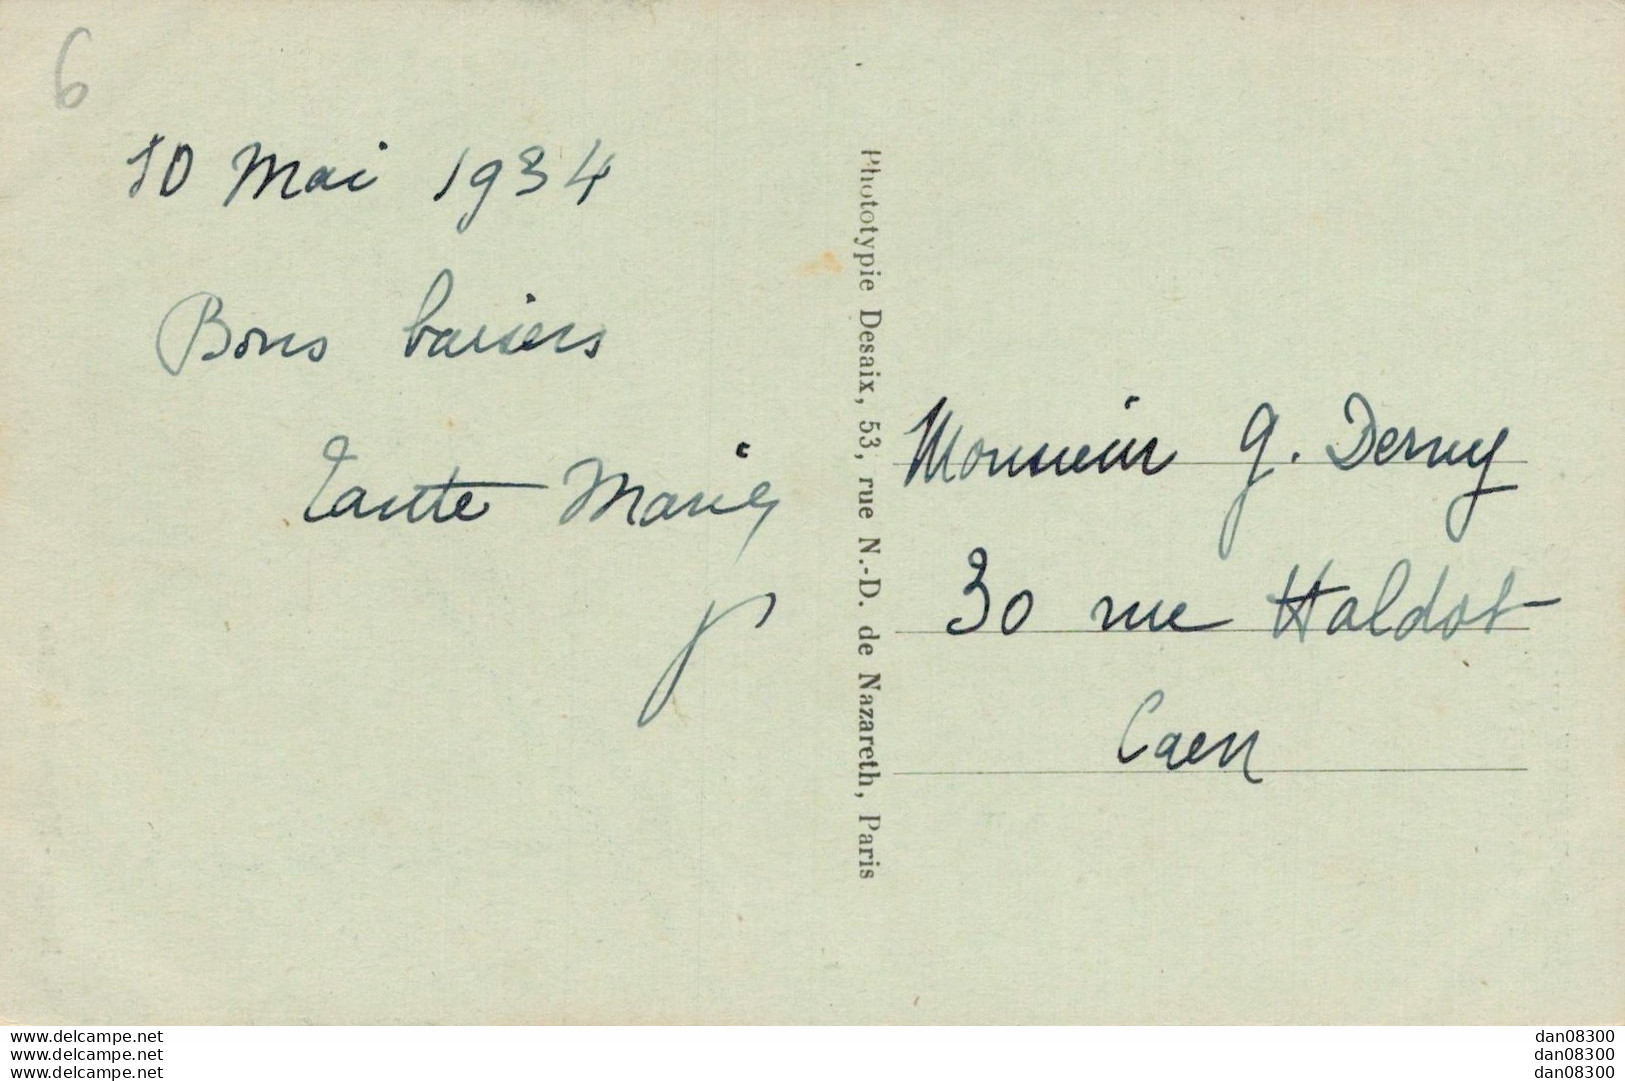 6
10 Mai 1934
Bons baisers
Tante Marie
Phototypie Desaix, 53, rue N.-D. de Nazareth, Paris
Monsieur G. Derny
30 rue Haldot
Caen
www.delcampe.net
www.delcampe.net
www.delcampe.net
dan08300
dan08300
dan08300